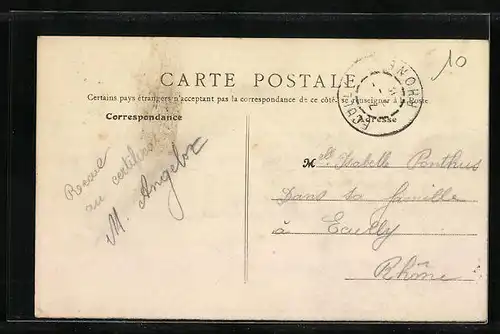 10
CARTE POSTALE
Certains pays étrangers n'acceptant pas la correspondance de ce côté, se renseigner à la Poste
Correspondance
Adresse
ECULLY
RHONE
au
M. Angelor
Mlle Isabelle Ponthus
Dans sa famille
à Ecully
Rhône